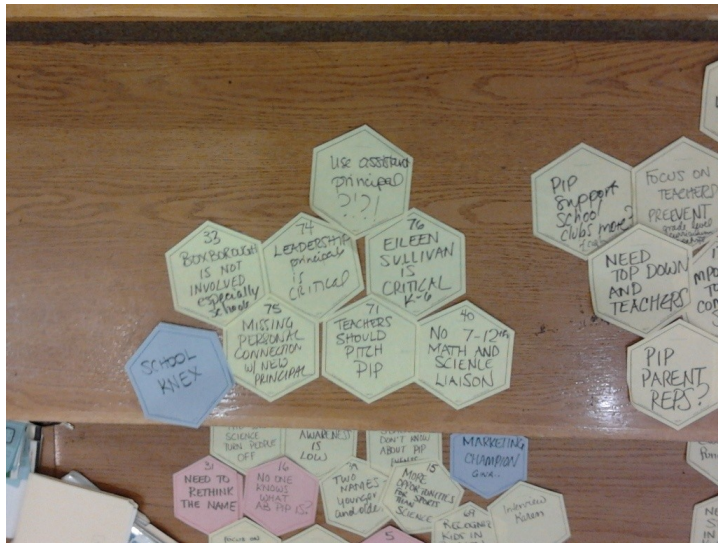 Use assistant
principal
?!?!
33
BOXBOROUGH
IS NOT
INVOLVED
especially
schools
74
LEADERSHIP
principals
IS
CRITICAL
76
EILEEN
SULLIVAN
IS
CRITICAL
K-6
SCHOOL
KNEX
75
MISSING
PERSONAL
CONNECTION
W/ NEW
PRINCIPAL
71
TEACHERS
SHOULD
PITCH
PIP
40
NO 7-12th
MATH AND
SCIENCE
LIAISON
PIP
Support
School
clubs more?
FOCUS ON
TEACHERS
PREEVENT
grade level
NEED
TOP DOWN
AND
TEACHERS
PIP
PARENT
REPS?
SCIENCE
TURN PEOPLE
OFF
AWARENESS
IS
LOW
DON'T KNOW
ABOUT PIP
MARKETING
CHAMPION
31
NEED TO
RETHINK
THE NAME
16
NO ONE
KNOWS
WHAT
AB PIP IS?
TWO
NAMES
Younger
and older
15
MORE
OPPORTUNITIES
FOR SPORTS
THAN
SCIENCE
69
RECOGNIZE
KIDS IN
Interview
Karen
5